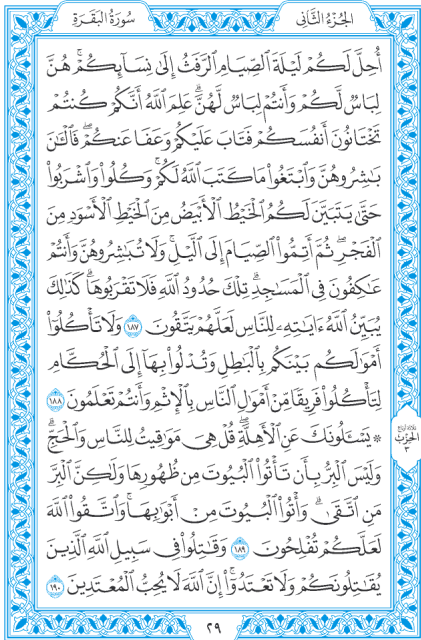 الجُزْءُ الثَّانِي
سُورَةُ البَقَرَةِ
أُحِلَّ لَكُمْ لَيْلَةَ ٱلصِّيَامِ ٱلرَّفَثُ إِلَىٰ نِسَآئِكُمْۚ هُنَّ
لِبَاسٌ لَّكُمْ وَأَنتُمْ لِبَاسٌ لَّهُنَّۗ عَلِمَ ٱللَّهُ أَنَّكُمْ كُنتُمْ
تَخْتَانُونَ أَنفُسَكُمْ فَتَابَ عَلَيْكُمْ وَعَفَا عَنكُمْۖ فَٱلْـَٰٔنَ
بَٰشِرُوهُنَّ وَٱبْتَغُوا۟ مَا كَتَبَ ٱللَّهُ لَكُمْۚ وَكُلُوا۟ وَٱشْرَبُوا۟
حَتَّىٰ يَتَبَيَّنَ لَكُمُ ٱلْخَيْطُ ٱلْأَبْيَضُ مِنَ ٱلْخَيْطِ ٱلْأَسْوَدِ مِنَ
ٱلْفَجْرِۖ ثُمَّ أَتِمُّوا۟ ٱلصِّيَامَ إِلَى ٱلَّيْلِۚ وَلَا تُبَٰشِرُوهُنَّ وَأَنتُمْ
عَٰكِفُونَ فِى ٱلْمَسَٰجِدِۗ تِلْكَ حُدُودُ ٱللَّهِ فَلَا تَقْرَبُوهَاۗ كَذَٰلِكَ
يُبَيِّنُ ٱللَّهُ ءَايَٰتِهِۦ لِلنَّاسِ لَعَلَّهُمْ يَتَّقُونَ ١٨٧ وَلَا تَأْكُلُوٓا۟
أَمْوَٰلَكُم بَيْنَكُم بِٱلْبَٰطِلِ وَتُدْلُوا۟ بِهَآ إِلَى ٱلْحُكَّامِ
لِتَأْكُلُوا۟ فَرِيقًا مِّنْ أَمْوَٰلِ ٱلنَّاسِ بِٱلْإِثْمِ وَأَنتُمْ تَعْلَمُونَ ١٨٨
۞ يَسْـَٔلُونَكَ عَنِ ٱلْأَهِلَّةِۖ قُلْ هِىَ مَوَٰقِيتُ لِلنَّاسِ وَٱلْحَجِّۗ
وَلَيْسَ ٱلْبِرُّ بِأَن تَأْتُوا۟ ٱلْبُيُوتَ مِن ظُهُورِهَا وَلَٰكِنَّ ٱلْبِرَّ
مَنِ ٱتَّقَىٰۗ وَأْتُوا۟ ٱلْبُيُوتَ مِنْ أَبْوَٰبِهَاۚ وَٱتَّقُوا۟ ٱللَّهَ
لَعَلَّكُمْ تُفْلِحُونَ ١٨٩ وَقَٰتِلُوا۟ فِى سَبِيلِ ٱللَّهِ ٱلَّذِينَ
يُقَٰتِلُونَكُمْ وَلَا تَعْتَدُوٓا۟ۚ إِنَّ ٱللَّهَ لَا يُحِبُّ ٱلْمُعْتَدِينَ ١٩٠
الحِزْبُ
٣
٢٩